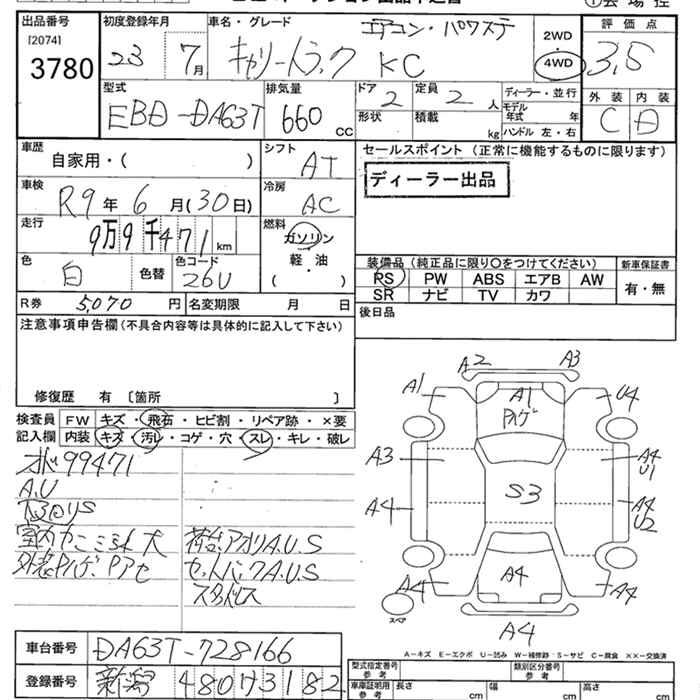 出品番号
[2074]
3780
初度登録年月
23 7月
車名・グレード
エアコン・パワステ
キャリートラック KC
2WD
4WD
評価点
3.5
型式
EBD-DA63T
排気量
660 cc
ドア
2
定員
2 人
形状
積載
kg
ディーラー・並行
モデル
年式 年
ハンドル 左・右
外装 内装
C D
車歴
自家用・( )
シフト
AT
セールスポイント (正常に機能するものに限ります)
ディーラー出品
車検
R9年 6月(30日)
冷房
AC
走行
9万9千471km
燃料
ガソリン
・
軽・油
・
( )
色
白
色替
色コード
26U
装備品(純正品に限り〇をつけてください)
RS PW ABS エアB AW
SR ナビ TV カワ
新車保証書
有・無
R券 5,070 円
名変期限 月 日
後日品
注意事項申告欄(不具合内容等は具体的に記入して下さい)
修復歴 有 〔箇所 〕
検査員
記入欄
FW キズ・飛石・ヒビ割・リペア跡・×要
内装 キズ・汚レ・コゲ・穴・スレ・キレ・破レ
99471
A.U
室内カニミ 大
荷台.アオリA.U.S
セットバックA.U.S
スタッドレス
A2 A3
A1
A1
U4
A3
A4
U1
S3
A4
A4
U2
A4
A4
A4
スペア
A4
A-キズ E-エクボ U-凹み W-補修跡 S-サビ C-腐食 XX-交換済
車台番号
DA63T-728166
登録番号
新潟 480 ツ 3182
型式指定番号
参考
類別区分番号
参考
車庫証明用
参考
長さ cm
幅 cm
高さ cm